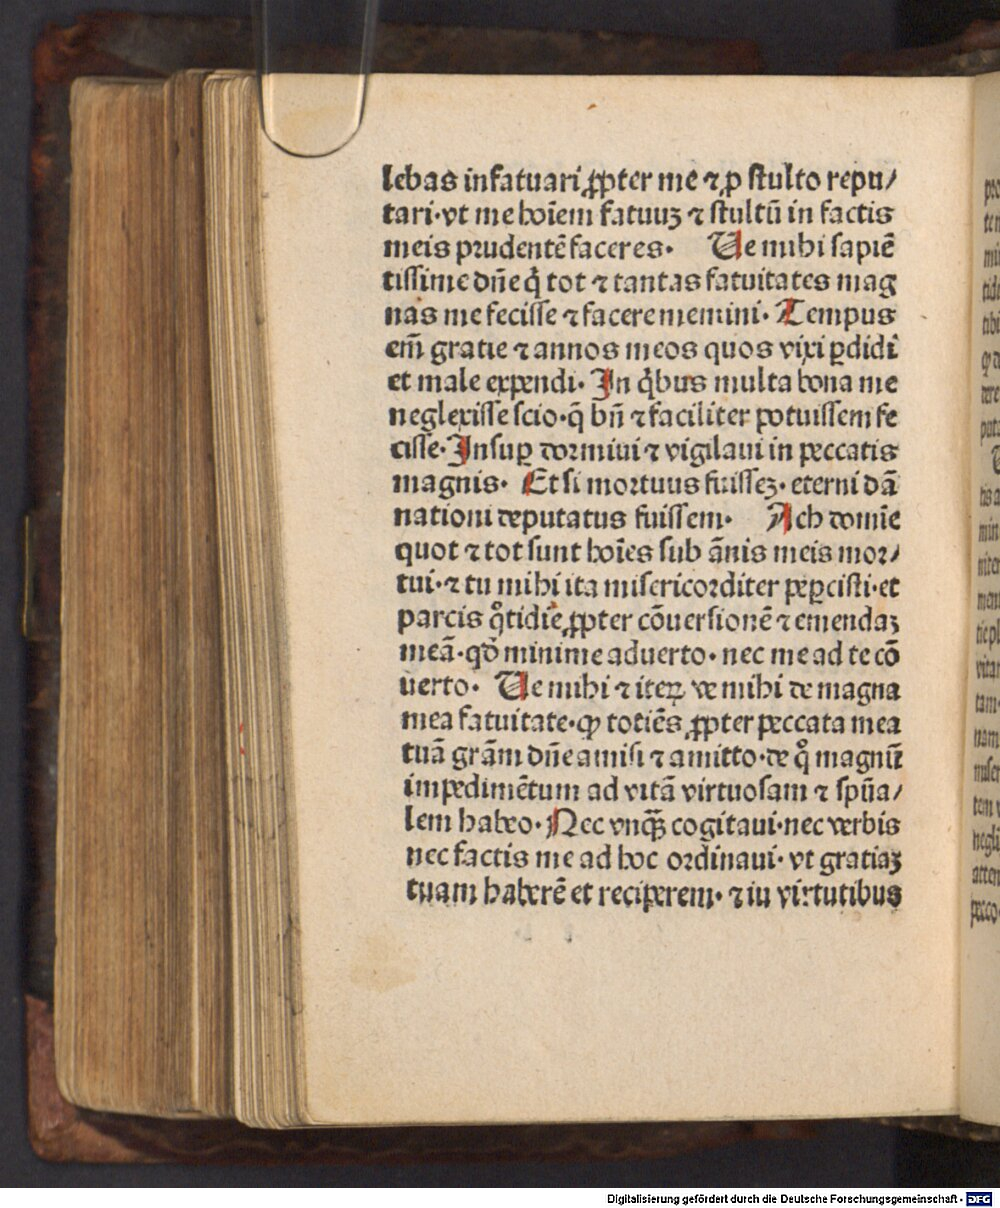 lebas infatuari ꝓpter me ⁊ ꝓ stulto repu/
tari·vt me hoīem fatuuꝫ ⁊ stultū in factis
meis prudentē faceres· Ue mihi sapiē
tissime dn̄e q̇ tot ⁊ tantas fatuitates mag
nas me fecisse ⁊ facere memini· Tempus
em̄ gratie ⁊ annos meos quos vixi ꝑdidi
et male expendi· In q̇bus multa bona me
neglexisse scio·q̄ bn̄ ⁊ faciliter potuissem fe
cisse·Insuꝑ dormiui ⁊ vigilaui in peccatis
magnis· Et si mortuus fuisseꝫ· eterni dā
nationi deputatus fuissem· Ach domīe
quot ⁊ tot sunt hoīes sub ānis meis mor/
tui·⁊ tu mihi ita misericorditer peꝑcisti·et
parcis qͦtidie,ꝓpter cōuersionē ⁊ emendaꝫ
meā·qđ minime aduerto·nec me ad te cō
uerto· Ue mihi ⁊ iteꝝ ve mihi de magna
mea fatuitate·ꝙ totiēs ꝓpter peccata mea
tuā grām dn̄e amisi ⁊ amitto·de qͦ magnū
impedimētum ad vitā virtuosam ⁊ spūa/
lem habeo·Nec vnqꝫ̄ cogitaui·nec verbis
nec factis me ad hoc ordinaui· vt gratiaꝫ
tuam haberē et reciperem· ⁊ iu virtutibus
Digitalisierung gefördert durch die Deutsche Forschungsgemeinschaft - DFG